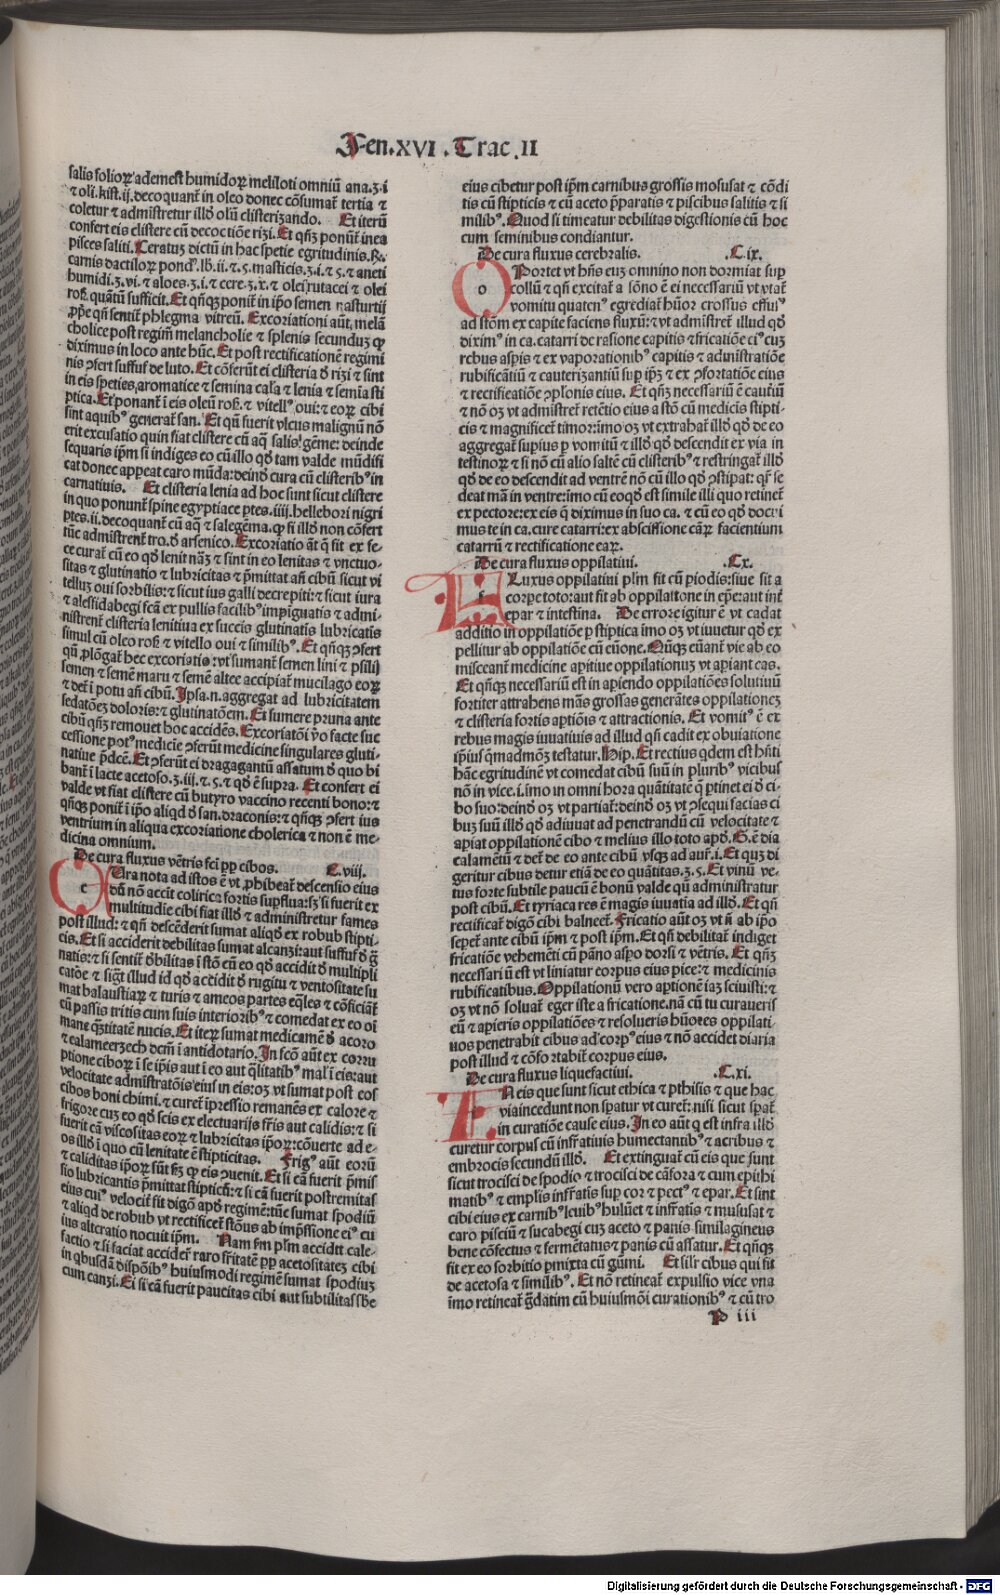 Fen.XVI.Trac.II
salis folioꝝ ademest humidoꝝ meliloti omniū ana.ʒ.i
⁊ oli.kist.ij.decoquant̄ in oleo donec cōsumat̄ tertia ⁊
coletur ⁊ admīstretur illđ olū clisterizando. Et iterū
confert eis clistere cū decoctiōe rizi. Et qn̄qʒ ponūt̄ in ea
pisces saliti. Ceratuʒ dictū in hac spetie egritudinis.
carnis dactiloꝝ
humidi.ʒ.vi.⁊ aloes.ʒ.i.⁊ cere.ʒ.x.⁊ olei rutacei ⁊ olei
ros̄. quātū sufficit. Et qn̄qʒ ponit̄ in ip̄o semen nasturtij
ꝓp̄e qn̄ senit̄ phlegma vitreū. Excoriationi aūt melā
cholice post regim̄ melancholie ⁊ splenis secunduʒ ꝙ
diximus in loco ante hūc. Et post rectificationē regimi
nis ꝯfert suffuf de luto. Et cōferūt ei clisteria đ rizi ⁊ sint
in eis speties aromatice ⁊ semina cal̄a ⁊ lenia ⁊ semīa sti
ptica. Et ponant̄ ī eis oleū ros̄. ⁊ vitellꝰ oui: ⁊ eoꝝ cibi
sint aquibꝰ generat̄ san. Et qn̄ fuerit vlcus malignū nō
erit excusatio quin fiat clistere cū aq̄ salis gēme: deinde
sequaris ip̄m si indiges eo cū illo qđ tam valde mūdifi
cat donec appeat caro mūda: deinđ cura cū clisteribꝰ in
carnatiuis. Et clisteria lenia ad hoc sunt sicut clistere
in quo ponunt̄ spine egyptiace p̄tes.iiij.hellebori nigri
p̄tes.ii.decoquant̄ cū aq̄ ⁊ salegēma. ꝙ si illđ non cōfert
tūc admīstrent̄ tro.đ arsenico. Excoriatio āt q̄ fit ex fe-
ce curat̄ cū eo qđ lenit naʒ ⁊ sint in eo lenitas ⁊ vnctuo-
sitas ⁊ glutinatio ⁊ lubricitas ⁊ p̄mittat añ cibū sicut vi
telluʒ oui sorbilis: ⁊ sicut ius galli decrepiti: ⁊ sicut iura
⁊ alesfidabegi fcā ex pullis facilibꝰ impīguatis ⁊ admi-
nistrent̄ clisteria lenitiua ex succis glutinatis lubricatis
simul cū oleo ros̄ ⁊ vitello oui ⁊ similibꝰ. Et qn̄qʒ ꝯfert
qn̄ ꝓlōgat̄ hec excoriatis: vt sumant̄ semen lini ⁊ psilij
semen ⁊ semē maru ⁊ semē altee accipiat̄ mucilago eoꝝ
⁊ det̄ ī potu añ cibū. Ipsa.n.aggregat ad lubricitatem
sedatōeʒ doloris: ⁊ glutinatōem. Et sumere pruna ante
cibū qn̄ʒ remouet hoc accidēs. Excoriatōi v̄o facte suc
cessione potꝰ medicīe ꝯferūt medicine singulares gluti-
natiue p̄dcē. Et ꝯferūt ei dragagantū assatum đ quo bi
bant̄ ī lacte acetoso.ʒ.iii.⁊.ꝭ.⁊ qđ ē supra. Et confert ei
valde vt fiat clistere cū butyro vaccino recenti bono: ⁊
qn̄qʒ ponit̄ ī ip̄o aliqđ đ san. draconis: ⁊ qn̄qʒ ꝯfert ius
ventrium in aliqua excoriatione cholerica ⁊ non ē me-
dicina omnium.
De cura fluxus vētris fci pp̄ cibos. C.viij.
CUra nota ad istos ē vt ꝓhibeat̄ descensio eius
dū nō accīt colirica fortis supflua: sʒ si fuerit ex
multitudīe cibi fiat illđ ⁊ administretur fames
post illud: ⁊ qn̄ descēderit sumat aliqđ ex robub stipti-
cis. Et si acciderit debilitas sumat alcanzi: aut suffuf đ g̅
natis: ⁊ si sentit̄ đbilitas ī stō cū eo qđ accidit đ multipli
catōe ⁊ sig̅t illud id qđ accidit đ rugitu ⁊ ventositate su
mat balaustiaꝝ ⁊ turis ⁊ ameos partes eq̄les ⁊ cōficiat̄
cū passis tritis cum suis interioribꝰ ⁊ comedat ex eo oī
mane q̄ntitatē nucis. Et iteꝝ sumat medicamē đ acoro
⁊ calameerzech dcm̄ ī antidotario. In fcō aūt ex corru
ptione ciboꝝ ī se ip̄is aut ī eo aut q̄litatibꝰ malꝰ ī eis: aut
velocitate admīstratōis eius in eis: oʒ vt sumat post eos
cibos boni chimi. ⁊ curet̄ īpressio remanēs ex calore ⁊
frigore cuʒ eo qđ scis ex electuarijs fr̄is aut calidis: ⁊ si
fuerit cā viscositas eoꝝ ⁊ lubricitas ip̄oꝝ: cōuerte ad e-
os illđ ī quo cū lenitate ē stipticitas. Frigꝰ aūt eorū
⁊ caliditas ip̄oꝝ sūt sʒ ꝙ eis ꝯuenit. Et si cā fuerit p̄mis
sio lubricantis p̄mittat stipticū: ⁊ si cā fuerit postremitas
eius cuiꝰ velocit̄ fit digō apđ regimē: tūc sumat spodiū
⁊ aliqđ de robub vt rectificet̄ stōus ab impssione eiꝰ cu
ius alteratio nocuit ip̄m. Nam fm̄ p̄sm accidit cale-
factio ⁊ si faciat accidet̄ raro fr̄itatē pp̄ acetositateʒ cibi
in qbusdā dispōibꝰ huiusmodi regimē sumat spodiuʒ
cum canzi. Ei si cā fuerit paucitas cibi aut subtilitas s̄be
eius cibetur post ip̄m carnibus grossis mosusat ⁊ cōdi
tis cū stipticis ⁊ cū aceto p̄paratis ⁊ piscibus salitis ⁊ si
milibꝰ. Quod si timeatur debilitas digestionis cū hoc
cum seminibus condiantur.
De cura fluxus cerebralis. C.ix.
OPortet vt hn̄s euʒ omnino non dormiat sup
collū ⁊ qn̄ excitat̄ a sōno ē ei necessariū vt vtat̄
vomitu quatenꝰ egrediat̄ hūor crossus effusꝰ
ad stōm ex capite faciens fluxū: ⁊ vt admīstret̄ illud qđ
diximꝰ in ca. catarri de rasione capitis ⁊ fricatiōe eiꝰ cuʒ
rebus aspis ⁊ ex vaporationibꝰ capitis ⁊ admistratiōe
rubificātiū ⁊ cauterizantiū sup ip̄ʒ ⁊ ex ꝯfortatiōe eius
⁊ rectificatiōe ꝯplonis eius. Et qn̄ʒ necessariū ē cautiū
⁊ nō oʒ vt admistret̄ retētio eius a stō cū medicis stipti-
cis ⁊ magnificet̄ timor: īmo oʒ vt extrahat̄ illđ qđ de eo
aggregat̄ supius p vomitū ⁊ illđ qđ descendit ex via in
testinoꝝ ⁊ si nō cū alio saltē cū clisteribꝰ ⁊ restringat̄ illđ
qđ de eo descendit ad ventrē nō cū illo qđ ꝯstipat: qr̄ se
deat mā in ventre: īmo cū eo qđ est simile illi quo retinet̄
ex pectore: ex eis q̄ diximus in suo ca. ⁊ cū eo qđ docui
mus te in ca. cure catarri: ex abscissione cāꝝ facientium
catarrū ⁊ rectificatione eaꝝ.
De cura fluxus oppilatiui. C.x.
FLuxus oppilatiui plm̄ fit cū ꝑiodis: siue sit a
corpe toto: aut fit ab oppilatione in epē: aut int̄
epar ⁊ intestina. De errore igitur ē vt cadat
additio in oppilatiōe ꝑ stiptica imo oʒ vt iuuetur qđ ex
pellitur ab oppilatiōe cū eūone. Qn̄qʒ eūant̄ vie ab eo
misceant̄ medicine apitiue oppilationuʒ vt apiant eas.
Et qn̄qʒ necessariū est in apiendo oppilatiōes solutiuū
fortiter attrahens mās grossas generātes oppilationeʒ
⁊ clisteria fortis aptiōis ⁊ attractionis. Et vomitꝰ ē ex
rebus magis iuuatiuis ad illud qn̄ cadit ex obuiatione
ip̄ius q̄madmoʒ testatur. Hip. Et rectius qdem est hn̄ti
hāc egritudinē vt comedat cibū suū in pluribꝰ vicibus
nō in vice.i.imo in omni hora quātitatē q̄ ꝑtinet ei đ ci-
bo suo: deinđ oʒ vt partiat̄: deinđ oʒ vt ꝯsequi facias ci
buʒ suū illđ qđ adiuuat ad penetrandū cū velocitate ⁊
apiat oppilationē cibo ⁊ melius illo toto apđ. G. ē dia
calamētū ⁊ det̄ de eo ante cibū vsqʒ ad aur̄.i. Et quʒ di
geritur cibus detur etiā de eo quātitas.ʒ.ꝭ. Et vinū ve-
tus forte subtile paucū ē bonū valde qn̄ administratur
post cibū. Et tyriaca res ē magis iuuatia ad illđ. Et qn̄
rectificat̄ digō cibi balneet̄. Fricatio aūt oʒ vt fi ab ip̄o
sepet̄ ante cibū ip̄m ⁊ post ip̄m. Et qn̄ debilitat̄ indiget
fricatiōe vehemēti cū pāno aspo dorsi ⁊ vētris. Et qn̄ʒ
necessariū est vt liniatur corpus eius pice: ⁊ medicinis
rubificatibus. Oppilationū vero aptionē iaʒ sciuisti: ⁊
oʒ vt nō soluat̄ eger iste a fricatione. nā cū tu curaueris
eū ⁊ apieris oppilatiōes ⁊ resolueris hūores oppilati-
uos penetrabit cibus ad corpꝰ eius ⁊ nō accidet diaria
post illud ⁊ cōfortabit̄ corpus eius.
De cura fluxus liquefactiui. C.xi.
IN eis que sunt sicut ethica ⁊ pthisis ⁊ que hac
via incedunt non spatur vt curet̄: nisi sicut spat̄
in curatiōe cause eius. In eo aūt q̄ est infra illđ
curetur corpus cū infr̄atiuis humectantibꝰ ⁊ acribus ⁊
embrocis secundū illđ. Et extinguat̄ cū eis que sunt
sicut trocisci de spodio ⁊ trocisci de cāfora ⁊ cum epithi
matibꝰ ⁊ emplis infr̄atis sup cor ⁊ pectꝰ ⁊ epar. Et sint
cibi eius ex carnibꝰ leuibꝰ hulūet ⁊ infr̄atis ⁊ mususat ⁊
caro pisciū ⁊ sucabegi cuʒ aceto ⁊ panis similagineus
bene cōfectus ⁊ fermētatus ⁊ panis cū assatur. Et qn̄qʒ
fit ex eo sorbitio pmixta cū gūmi. Et silr̄ cibus qui fit
de acetosa ⁊ similibꝰ. Et nō retineat̄ expulsio vice vna
īmo retineat̄ g̅datim cū huiusmōi curationibꝰ ⁊ cū tro
P iii
Digitalisierung gefördert durch die Deutsche Forschungsgemeinschaft - DFG